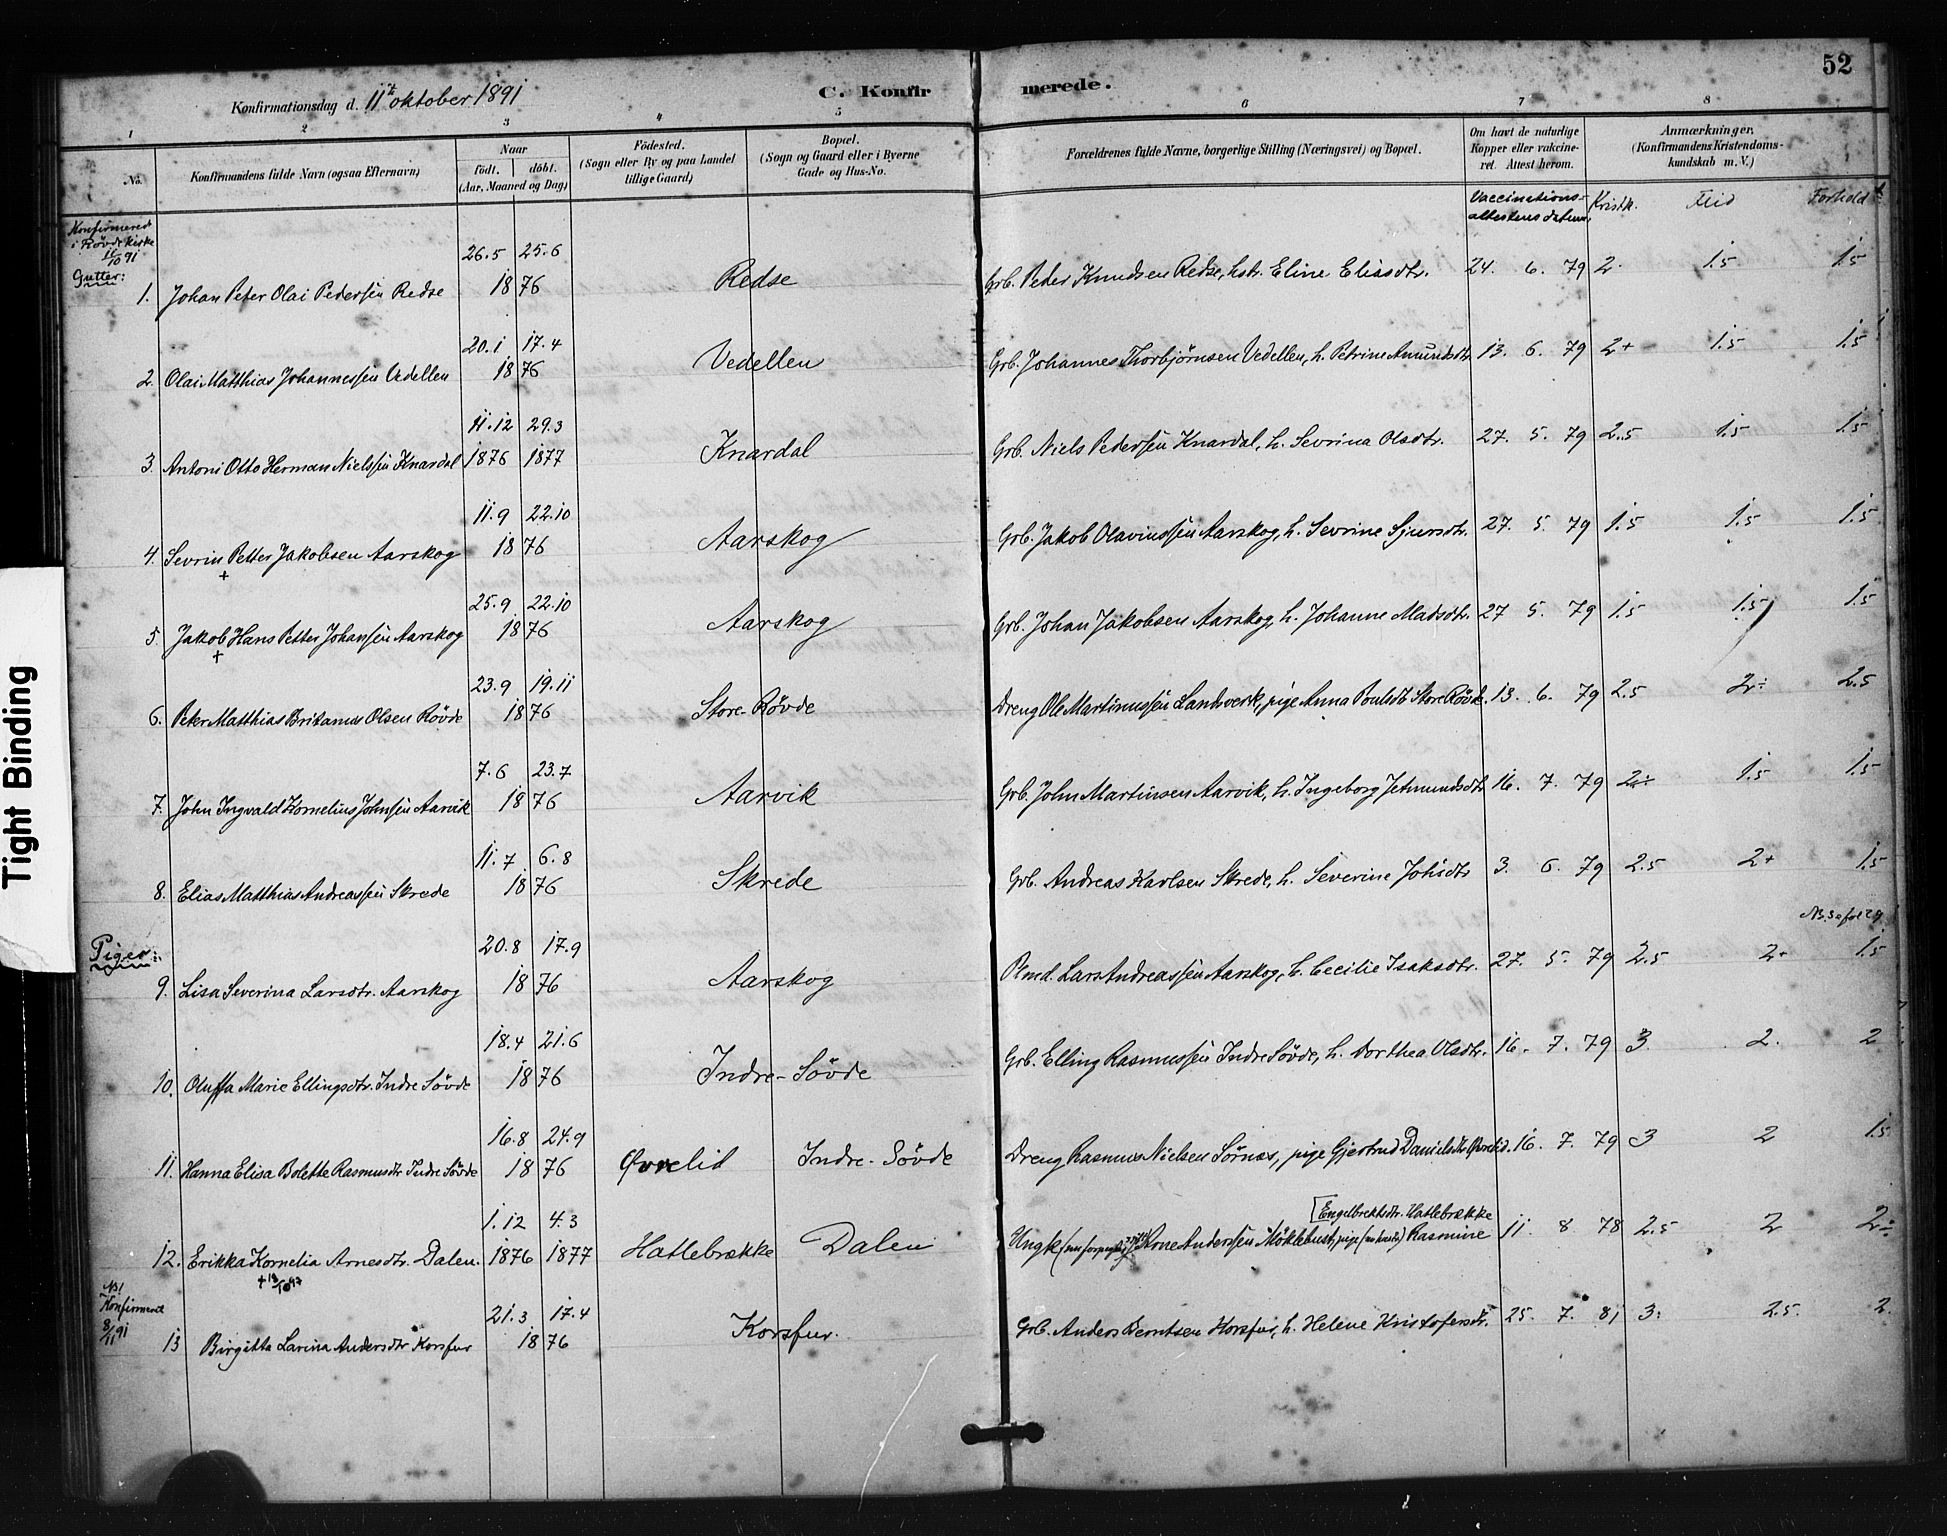 52
Konfirmationsdag d. 11te oktober 1891
C. Konfirmerede.
1 2 3 4 5 6 7 8
No.
Konfirmandens fulde Navn (ogsaa Efternavn)
Naar
födt. döbt.
(Aar, Maaned og Dag)
Födested.
(Sogn eller By og paa Landet
tillige Gaard)
Bopæl.
(Sogn og Gaard eller i Byerne
Gade og Hus-No.
Forældrenes fulde Navne, borgerlige Stilling (Næringsvei) og Bopæl.
Om havt de naturlige
Kopper eller vakcine-
ret. Attest herom.
Anmærkninger.
(Konfirmandens Kristendoms-
kundskab m. V.)
Vaccinations-
attestens datum.
Kristk. Flid Forhold
Konfirmeret
i Rövde kirke
11/10 91
Gutter:
26.5 25.6
1. Johan Peter Olai Pedersen Redse 1876 Redse Grb. Peder Knudsen Redse, hstr. Eline Eliasdtr. 24. 6. 79 2. 1.5 1.5
20.1 17.4
2. Olai Matthias Johannessen Vedellen 1876 Vedellen Grb. Johannes Thorbjørnsen Vedellen, h. Petrine Amundsdtr 13. 6. 79 2+ 1.5 1.5
11.12 29.3
3. Antoni Otto Herman Nielssen Knardal 1876 1877 Knardal Grb. Niels Pedersen Knardal, h. Sevrina Olsdtr. 27. 5. 79 2.5 1.5 1.5
11.9 22.10
4. Sevrin Petter Jakobsen Aarskog 1876 Aarskog Grb. Jakob Olavinssen Aarskog, h. Sevrine Sjursdtr. 27. 5. 79 1.5 1.5 1.5
+
25.9 22.10
5. Jakob Hans Petter Johansen Aarskog 1876 Aarskog Grb. Johan Jakobsen Aarskog, h. Johanne Madsdtr. 27 5. 79 1.5 1.5 1.5
+
23.9 19.11
6. Peter Matthias Britanus Olsen Rövde 1876 Store-Rövde Dreng Ole Martinussen Landsverk, pige Anna Poulsdtr Store Rövde. 13. 6. 79 2.5 2÷ 2.5
7.6 23.7
7. John Ingvald Kornelius Johnsen Aarvik 1876 Aarvik Grb. John Martinsen Aarvik, h. Ingeborg Jetmundsdtr 16. 7. 79 2÷ 1.5 1.5
11.7 6.8
8. Elias Matthias Andreassen Skrede 1876 Skrede Grb. Andreas Karlsen Skrede, h. Severine Johsdtr 3. 6. 79 2.5 2+ 1.5
Piger:
20.8 17.9
9. Lisa Severina Larsdtr. Aarskog 1876 Aarskog Plmd. Lars Andreassen Aarskog, h. Cecilie Isaksdtr. 27. 5. 79 2.5 2+ 1.5
18.4 21.6
10. Oluffa Marie Ellingsdtr. Indre Sövde 1876 Indre-Sövde Grb. Elling Rasmussen Indre Sövde, h. Dorthea Olsdtr. 16. 7. 79 3. 2. 2
16.8 24.9
11. Hanna Elisa Bolette Rasmusdtr Indre Sövde 1876 Øvrelid Indre-Sövde Dreng Rasmus Nielsen Sørnes, pige Gjertrud Danielsdtr Øvrelid. 16. 7. 79 3 2 1.5
1.12 4.3
[Engelbrektsdtr. Hatlebrække
12. Erikka Kornelia Arnesdtr. Dalen. 1876 1877 Hatlebrække Dalen Ungk Anderssen Möklebust, pige Rasmine 11. 8 78 2.5 2 2÷
NB!
Konfirmeret
8/11 91
21.3 17.4
13 Birgitta Larina Andersdtr Korsfur 1876 Korsfur. Grb. Anders Berntsen Korsfur, h. Helene Kristofersdtr. 25. 7. 81 3. 2.5. 2.
Tight Binding